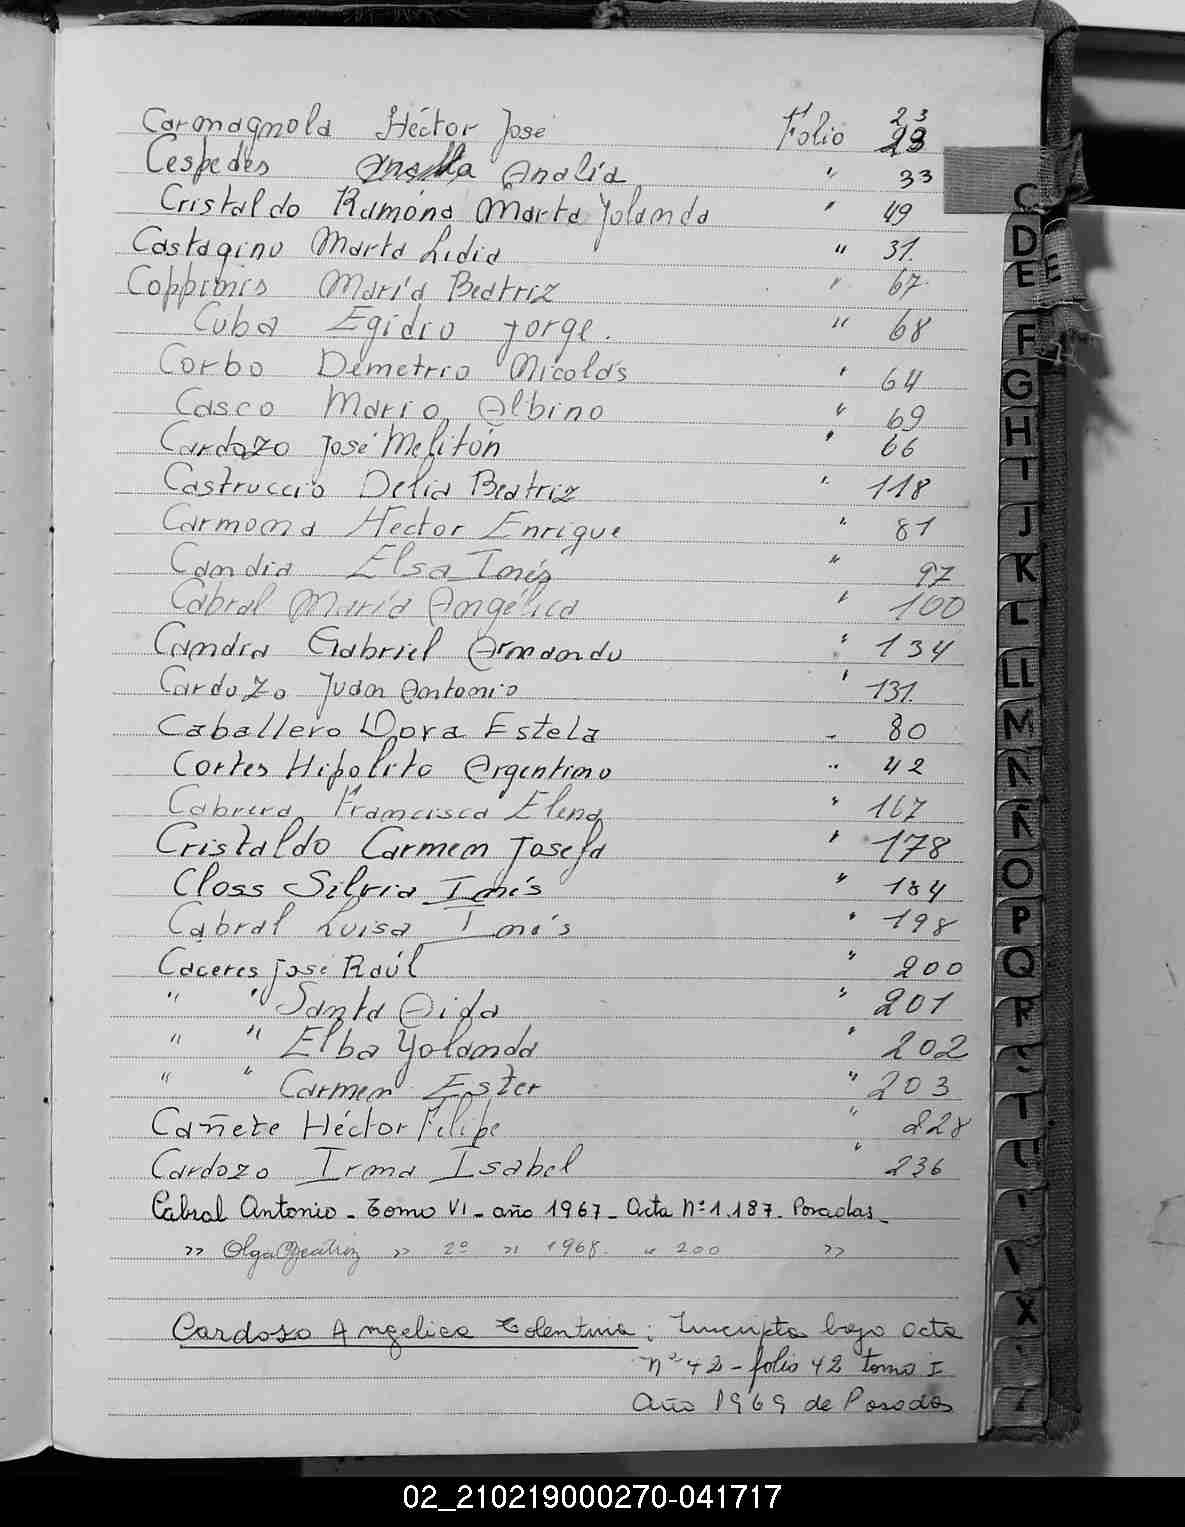 Carmagnola Héctor José Folio 23 23
Cespedes Analía " 33
Cristaldo Ramóna Marta Yolanda " 49
Castagino Marta Lidia " 31.
Coppinis María Beatriz " 67.
Cuba Egidio Jorge. " 68
Corbo Demetrio Nicolás " 64
Casco Mario Albino " 69
Cardozo José Melitón " 66
Castruccio Delia Beatriz " 118
Carmona Hector Enrique " 81
Candia Elsa Inés " 97
Cabral María Angélica " 100
Candia Gabriel Armando " 134
Cardozo Juan Antonio " 131.
Caballero Dora Estela " 80
Cortes Hipolito Argentino " 42
Cabrera Francisca Elena " 167
Cristaldo Carmen Josefa " 178
Closs Silvia Inés " 184
Cabral Luisa Inés " 198
Caceres José Raúl " 200
" " Santa Aida " 201
" " Elba Yolanda " 202
" " Carmen Ester " 203
Cañete Héctor Felipe " 228
Cardozo Irma Isabel " 236
Cabral Antonio - Tomo VI - año 1967 - Acta Nº 1.187. Posadas -
" Olga Beatriz " 2º " 1968. " 200 "
Cardoso Angelica Tolentina: Inscripta bajo acta
nº 42 - folio 42 tomo I
Año 1969 de Posadas
C
D
E E
F
G
H
I
J
K
L
LL
M
N
Ñ
O
P
Q
R
S
T
U
X
02_210219000270-041717